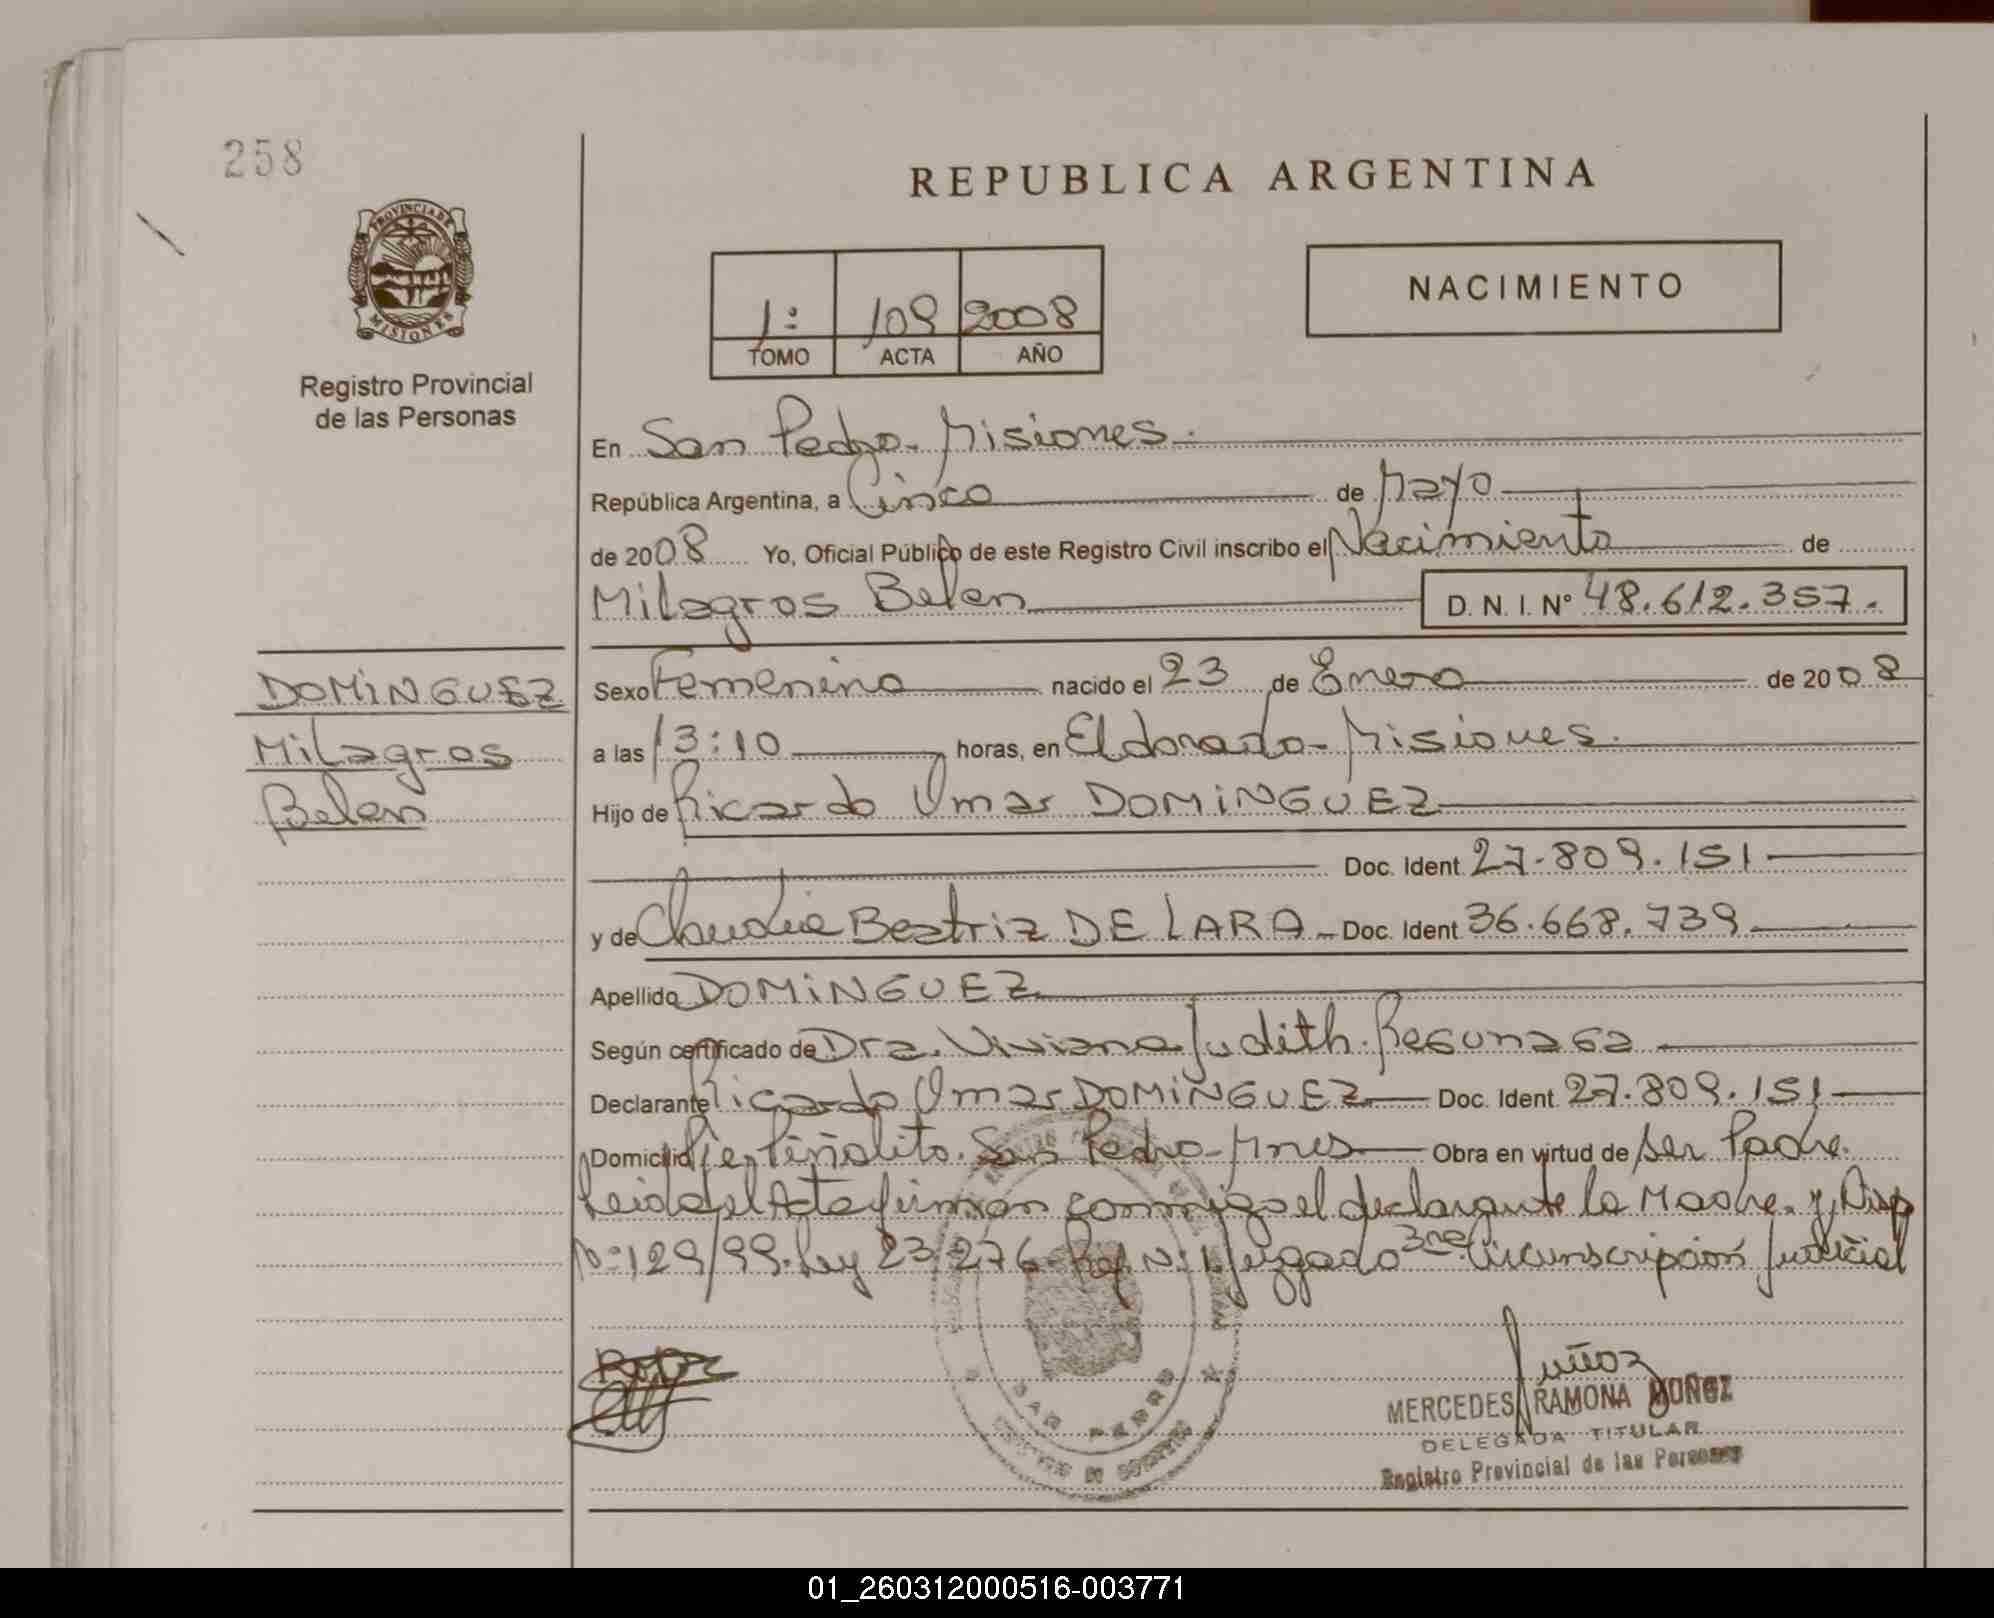 258
REPUBLICA ARGENTINA
PROVINCIA DE
MISIONES
Registro Provincial
de las Personas
1: 109 2008
TOMO ACTA AÑO
NACIMIENTO
En San Pedro - Misiones.
República Argentina, a Cinco de Mayo
de 2008 Yo, Oficial Público de este Registro Civil inscribo el Nacimiento de
Milagros Belen D. N. I. N° 48.612.357.
DOMINGUEZ
Milagros
Belen
Sexo Femenino nacido el 23 de Enero de 2008
a las 13:10 horas, en Eldorado - Misiones.
Hijo de Ricardo Omar DOMINGUEZ
Doc. Ident. 27.809.151
y de Claudia Beatriz DE LARA - Doc. Ident. 36.668.739
Apellido DOMINGUEZ
Según certificado de Dra. Viviana Judith
Declarante Ricardo Omar DOMINGUEZ Doc. Ident. 27.809.151
Domicilio Piñalito. San Pedro - Mnes Obra en virtud de ser Padre.
Leida el Acta firman conmigo el declarante la Madre. y Disp
N°:129/99. Ley 23.276 N: 1 Juzgado 3ra Circunscripción Judicial
SAN PEDRO
MERCEDES RAMONA MUÑOZ
DELEGADA TITULAR
Registro Provincial de las Personas
01_260312000516-003771